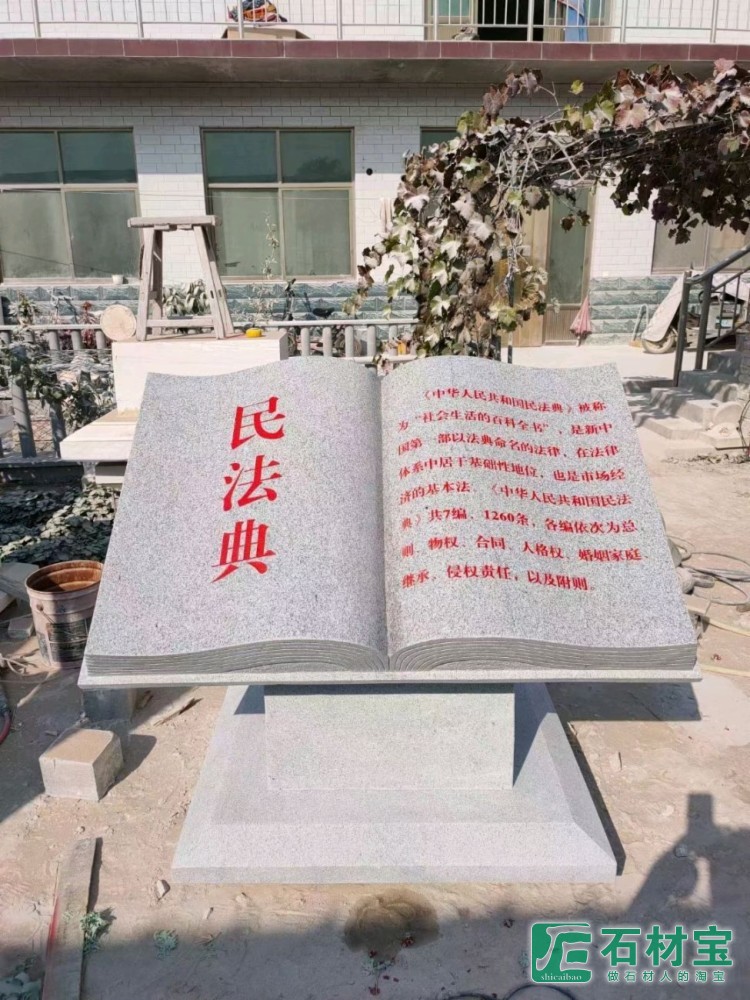 民法典
《中华人民共和国民法典》被称
为“社会生活的百科全书”，是新中
国第一部以法典命名的法律，在法律
体系中居于基础性地位，也是市场经
济的基本法。《中华人民共和国民法
典》共7编、1260条，各编依次为总
则、物权、合同、人格权、婚姻家庭、
继承、侵权责任，以及附则。
石材宝
shicaibao
做石材人的淘宝